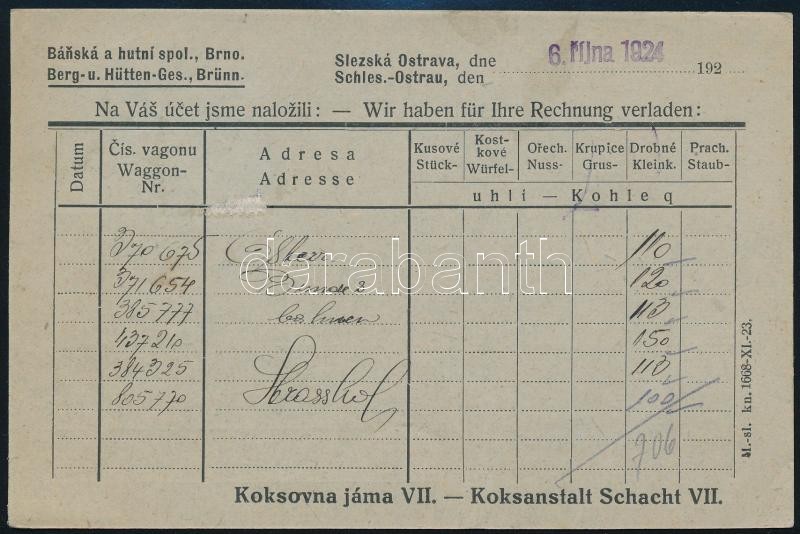 Báňská a hutní spol., Brno.
Berg- u. Hütten-Ges., Brünn.
Slezská Ostrava, dne
Schles.-Ostrau, den 6. října 1924 192
Na Váš účet jsme naložili: — Wir haben für Ihre Rechnung verladen:
Datum
Čís. vagonu
Waggon-
Nr.
Adresa
Adresse
Kusové
Stück-
Kost-
kové
Würfel-
Ořech.
Nuss-
Krupice
Grus-
Drobné
Kleink.
Prach.
Staub-
uhlí — Kohle q
370 675 110
371 654 120
385 777 113
437210 150
384325 113
805770 Strasshof 100
706
Koksovna jáma VII. — Koksanstalt Schacht VII.
M.-sl. kn. 1668-XI.-23.
darabanth.com